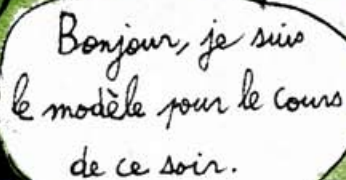 Bonjour, je suis
le modèle pour le cours
de ce soir.